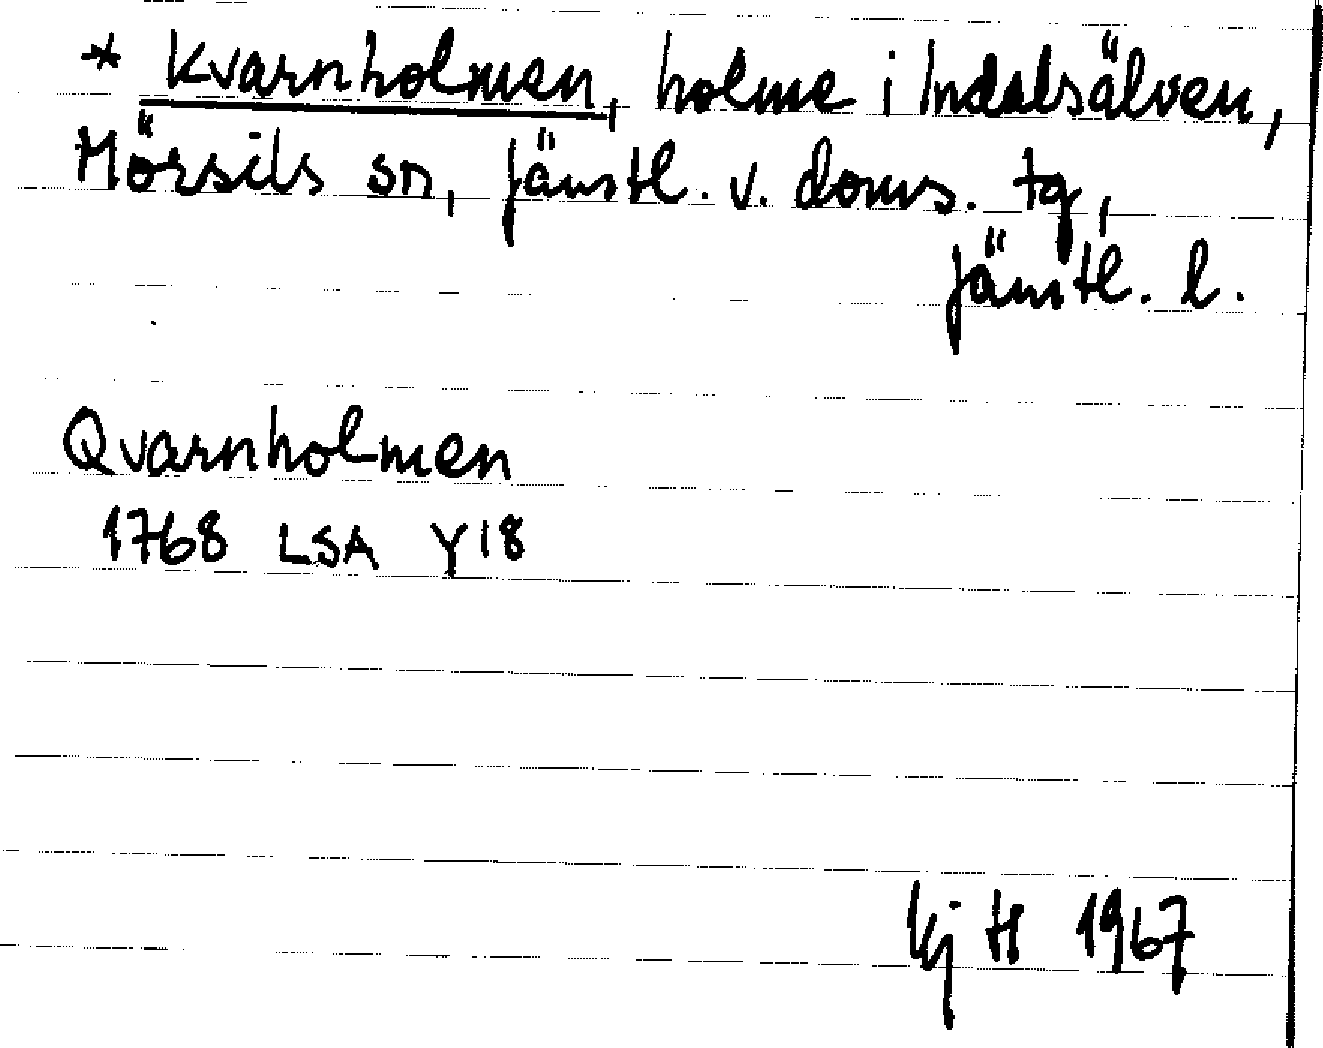 * Kvarnholmen, holme i Indalsälven,
Mörsils sn, Jämtl. v. doms. tg,
Jämtl. l.
Qvarnholmen
1768 LSA Y18
Kj H 1967